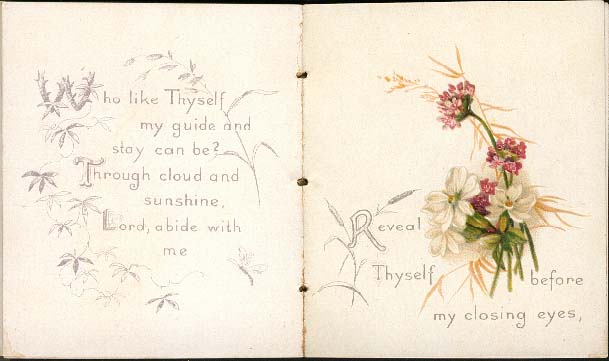 Who like Thyself
my guide and
stay can be?
Through cloud and
sunshine,
Lord, abide with
me
Reveal
Thyself before
my closing eyes,